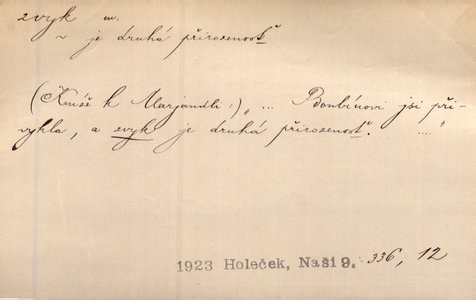 zvyk m.
~ je druhá přirozenosť
(Kníže k Marjandli:) „ ... Bonbínovi jsi při-
vykla, a zvyk je druhá přirozenosť. ... "
1923 Holeček, Naši 9. 336, 12